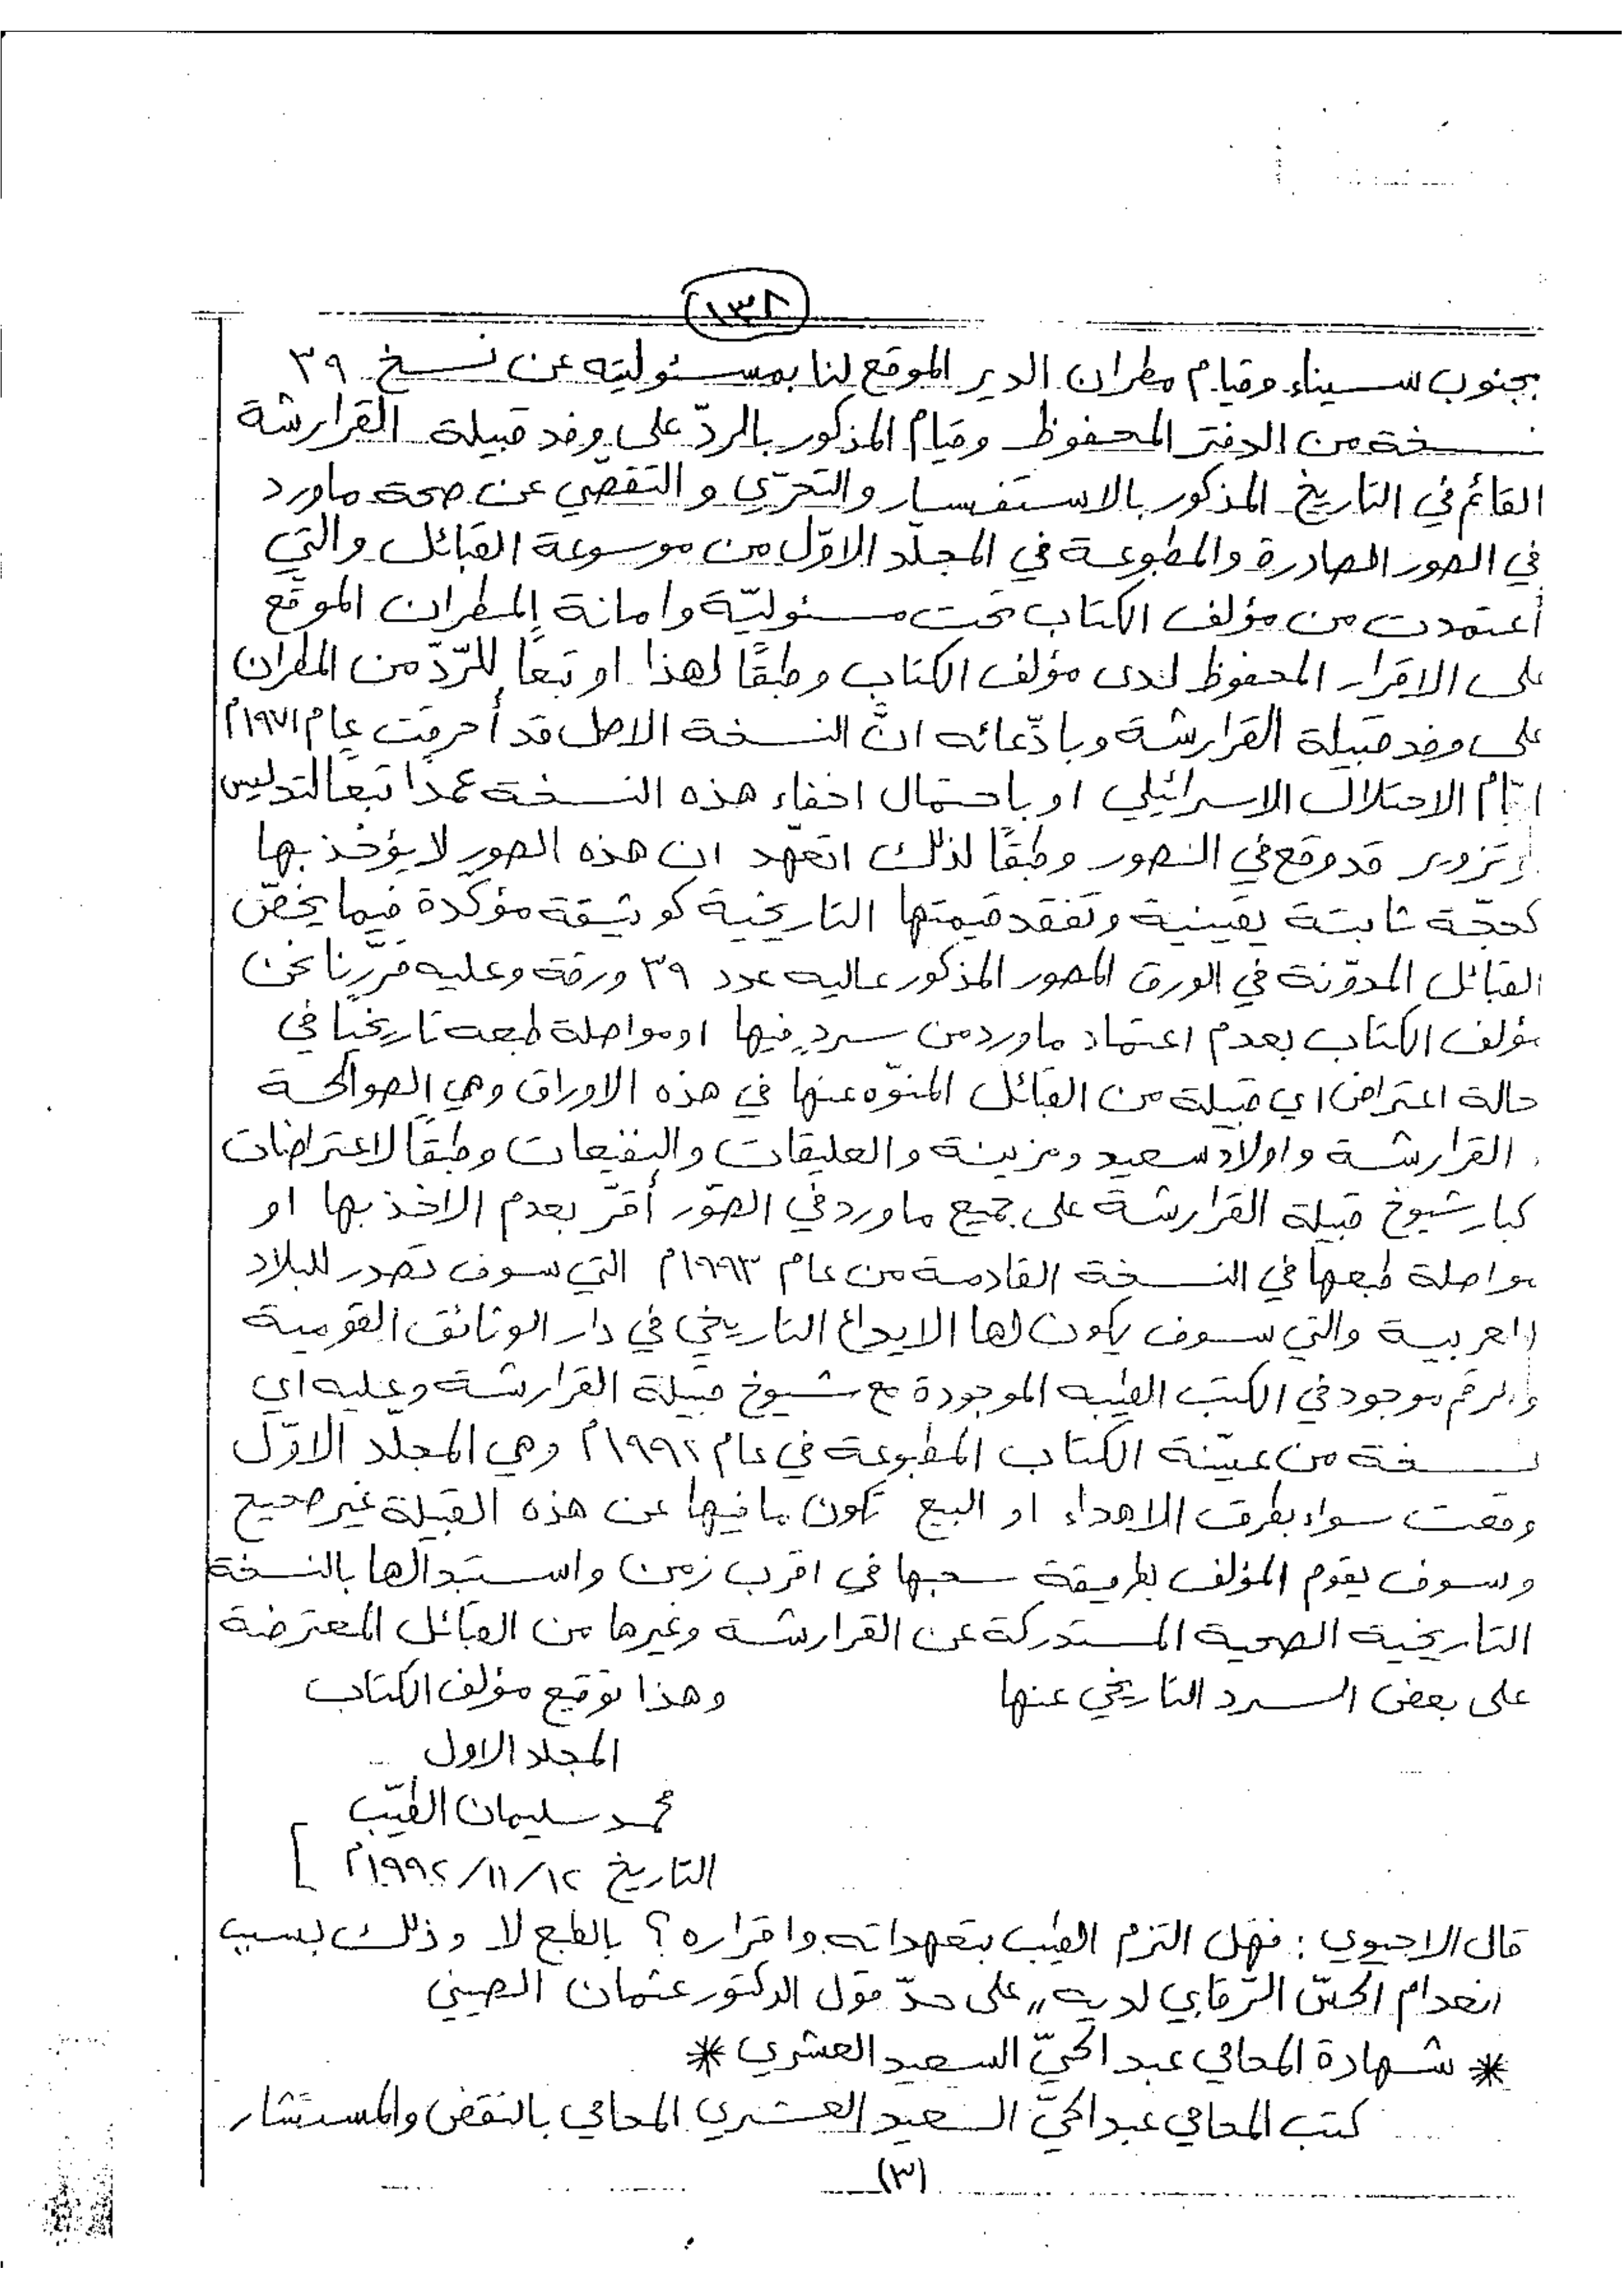 ١٣٨
بجنوب سيناء وقيام مطران الدير الموقع لنا بمسئوليته عن نسخ ٣٩
نسخة من الدفتر المحفوظ وقيام المذكور بالردّ على وفد قبيلة القرارشة
القائم في التاريخ المذكور بالاستفسار والتحرّي والتقصي عن صحة ماورد
في الصور الصادرة والمطبوعة في المجلّد الاوّل من موسوعة القبائل والتي
أعتمدت من مؤلف الكتاب تحت مسئوليّة وامانة المطران الموقّع
على الاقرار المحفوظ لدى مؤلف الكتاب وطبقًا لهذا او تبعًا للرّدّ من المطران
على وفد قبيلة القرارشة وبادّعائه انّ النسخة الاصل قد أحرقت عام ١٩٧١م
ايّام الاحتلال الاسرائيلي او باحتمال اخفاء هذه النسخة عمدًا تبعًا لتدليس
او تزوير قد وقع في الصور وطبقًا لذلك اتعهّد ان هذه الصور لا يؤخذ بها
كحجّة ثابتة يقينية وتفقد قيمتها التاريخية كوثيقة مؤكّدة فيما يخصّ
القبائل المدوّنة في الورق المصور المذكور عاليه عدد ٣٩ ورقة وعليه قرّرنا نحن
مؤلف الكتاب بعدم اعتماد ماورد من سردٍ فيها او مواصلة طبعه تاريخيا في
حالة اعتراض اي قبيلة من القبائل المنوّه عنها في هذه الاوراق وهي الصوالحة
القرارشة واولاد سعيد ومزينة والعليقات والنفيعات وطبقًا لاعتراضات
كبار شيوخ قبيلة القرارشة على جميع ماورد في الصّور أقرّ بعدم الاخذ بها او
مواصلة طبعها في النسخة القادمة من عام ١٩٩٣م التي سوف تصدر للبلاد
العربية والتي سوف يكون لها الايداع التاريخي في دار الوثائق القومية
والرقم موجود في الكتب الطيبه الموجودة مع شيوخ قبيلة القرارشة وعليه اي
نسخة من عيّنة الكتاب المطبوعة في عام ١٩٩٢م وهي المجلّد الاوّل
وقعت سواء بطرق الاهداء او البيع تكون ما فيها عن هذه القبيلة غير صحيح
وسوف يقوم المؤلف بطريقة سحبها في اقرب زمن واستبدالها بالنسخة
التاريخية الصحية المستدركة عن القرارشة وغيرها من القبائل المعترضة
على بعض السرد التاريخي عنها وهذا توقيع مؤلف الكتاب
المجلد الاول
محمد سليمان الطيّب
التاريخ ١٢/١١/١٩٩٢م ]
قال الاحيوي : فهل التزم الطيب بتعهداته واقراره ؟ بالطبع لا وذلك بسبب
انعدام الحسّ الرّقابي لديه " على حدّ قول الدكتور عثمان الصيني
* شهادة المحامي عبد الحيّ السعيد العشري *
كتب المحامي عبد الحيّ السعيد العشري المحامي بالنقض والمستشار
(٣)